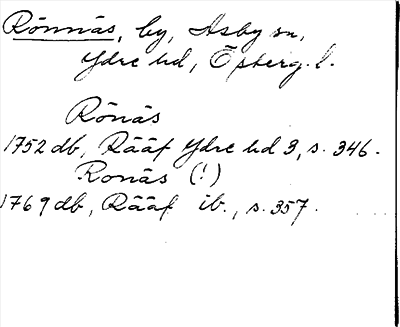 Rönnäs, by, Asby sn,
Ydre hd, Österg. l.
Rönäs
1752 db, Rääf Ydre hd 3, s. 346.
Ronäs (!)
1769 db, Rääf ib., s. 357.